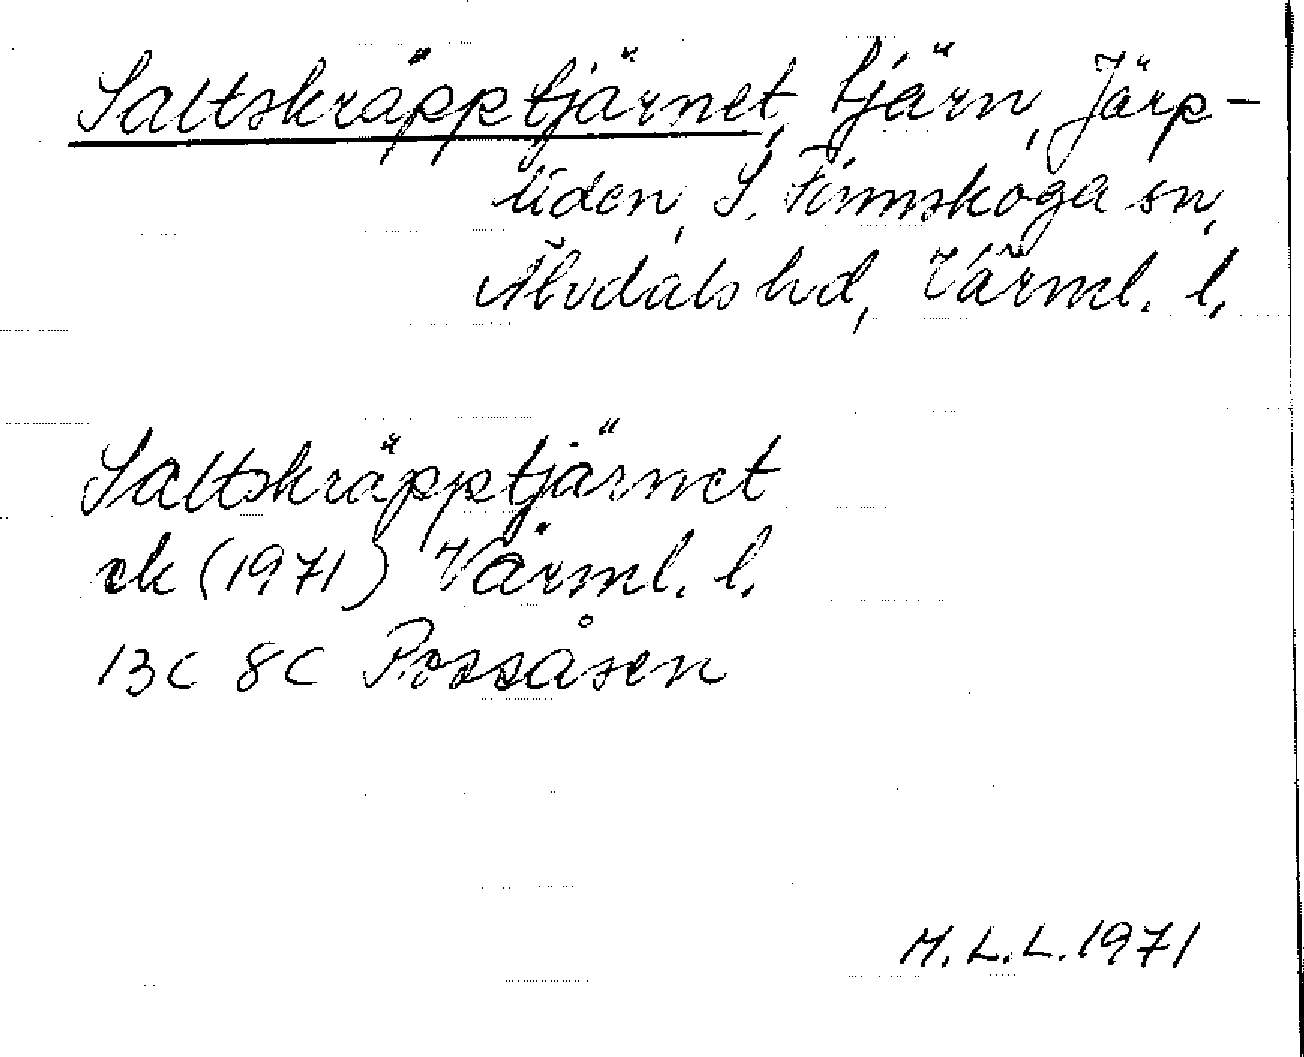 Saltskräpptjärnet, tjärn, Järp-
liden, S. Finnskoga sn,
Älvdals hd, Värml. l.
Saltskräpptjärnet
ek (1971) Värml. l.
13C 8C Possåsen
M.L.L. 1971